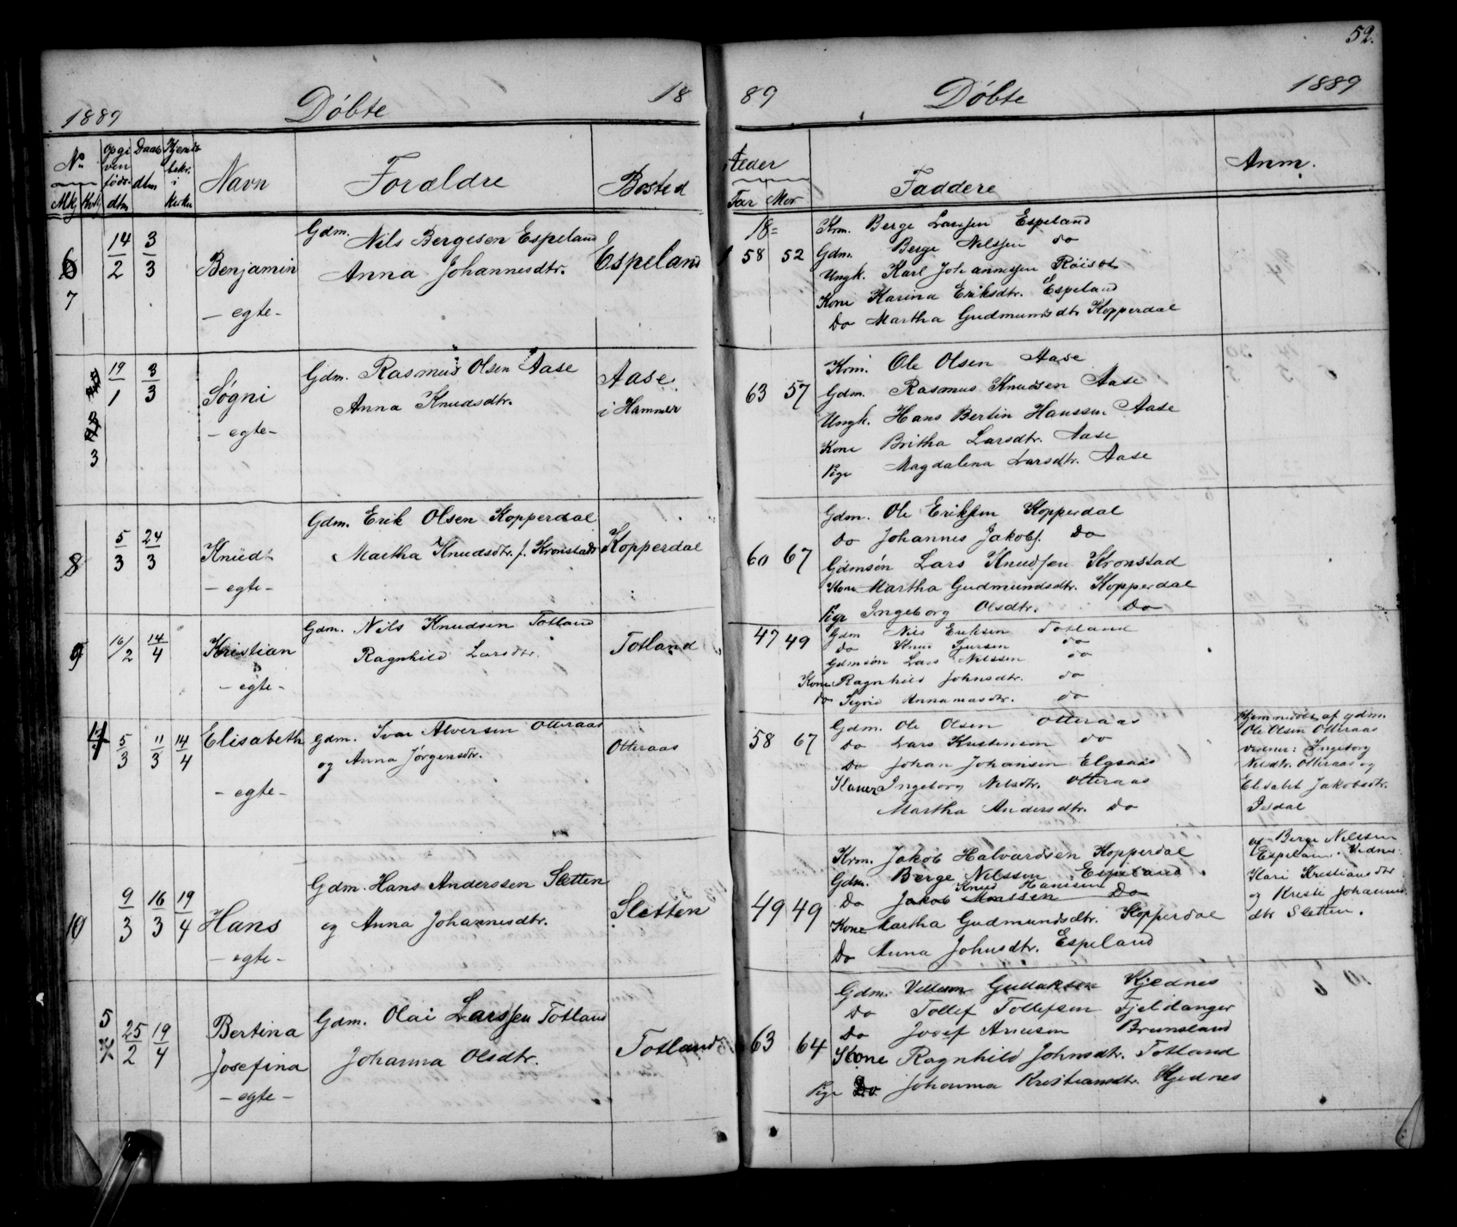 52.
1889 Döbte 18
89 Döbte 1889
No
Mk Kvk
Opgi
ven
føds.
dtm
Daab
dtm
Hjemde
bekr.
i
Kirken
Navn
Forældre
Bosted
Föder
Far Mor
Faddere
Anm.
6
7
14/2 3/3
Benjamin
- egte -
Gdm. Nils Bergesen Espeland
Anna Johannesdtr.
Espeland
18=
58 52
Krm. Berge Larssen Espeland
Gdm. Berge Nilssen do
Ungk. Karl Johannessen Röiset
Kone Karina Eriksdtr. Espeland
Do Martha Gudmundsdtr. Kopperdal
3
19/1 3/3
Søgni
- egte -
Gdm. Rasmus Olsen Aase
Anna Knudsdtr.
Aase
i Hammer
63 57
Krm. Ole Olsen Aase
Gdm. Rasmus Knudsen Aase
Ungk. Hans Bertin Hanssen Aase
Kone Britha Larsdtr. Aase
Pige Magdalena Larsdtr. Aase
8
5/3 24/3
Knudt
- egte -
Gdm. Erik Olsen Kopperdal
Martha Knudsdtr. f. Kronstad
Kopperdal
60 67
Gdm. Ole Eriksen Kopperdal
Do Johannes Jakobs. Do
Gdmsön Lars Knudsen Kronstad
Kone Martha Gudmundsdtr. Kopperdal
Pige Ingeborg Olsdtr. Do
9
16/2 14/4
Kristian
- egte -
Gdm. Nils Knudsen Totland
Ragnhild Larsdtr.
Totland
47 49
Gdm Nils Eriksen Totland
Do Knut Sjursen do
Gdmsön Lars Nilssen do
Kone Ragnhild Johnsdtr. do
do Sigrid Annamasdtr. do
4
5/3 11/3 14/4
Elisabeth
- egte -
Gdm. Ivar Alversen Otteraas
og Anna Jørgensdtr.
Otteraas
58 67
Gdm. Ole Olsen Otteraas
Do Lars Kristensen do
Do Johan Johansen Elgsaas
Koner Ingeborg Nilsdtr. Otteraas
Martha Andersdtr. Do
Hjemmedöbt af gdm.
Ole Olsen Otteraas
Vidner: Ingeborg
Nilsdtr. Otteraas og
Elisabet Jakobsdtr.
Isdal
10
9/3 16/3 19/4
Hans
- egte -
Gdm. Hans Anderssen Sletten
og Anna Johannesdtr.
Sletten
49 49
Krm. Jakob Halvardsen Kopperdal
Gdm. Berge Nilssen Espeland
Knud Hanssen
Do Jakob Monssen Do
Kone Martha Gudmundsdtr. Kopperdal
Do Anna Johnsdtr. Espeland
af Berge Nilssen
Espeland. Vidner:
Kari Kristiansdtr
og Kristi Johannes
dtr Sletten.
5
25/2 19/4
Bertina
Josefina
- egte -
Gdm. Olai Larssen Totland
Johanna Olsdtr.
Totland
63 64
Gdm. Villum Gullaksen Hjednes
Do Tollef Tollefsen Fjeldanger
Do Josef Arnesen Brunsland
Kone Ragnhild Johnsdtr. Totland
Pige Do Johanna Kristiansdtr. Hjednes